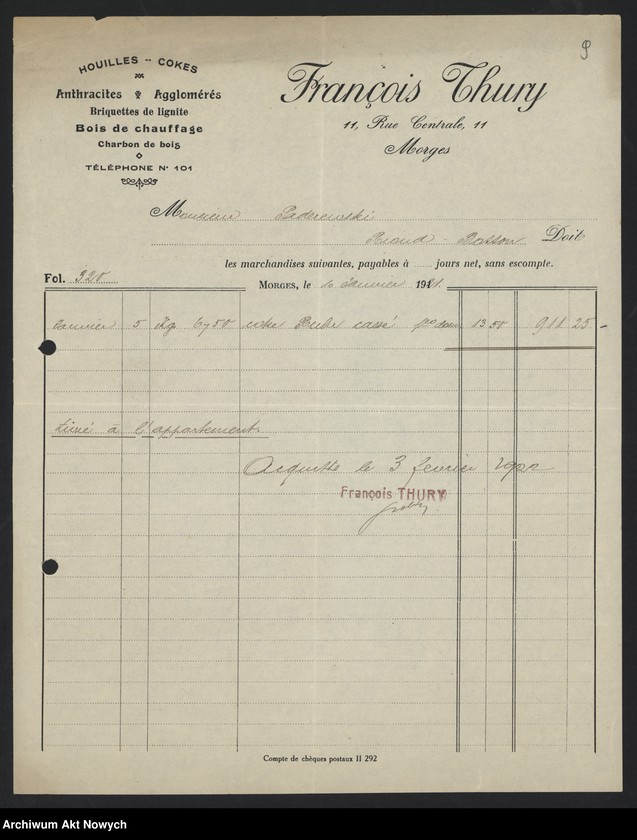 9
HOUILLES -- COKES
Anthracites Agglomérés
Briquettes de lignite
Bois de chauffage
Charbon de bois
TÉLÉPHONE No 101
François Thury
11, Rue Centrale, 11
Morges
Monsieur Paderewski
Riond - Bosson Doit
les marchandises suivantes, payables à jours net, sans escompte.
Fol. 320
MORGES, le Janvier 19
Janvier 5 Kg 6750 coke cassé 13.50 911 25 -
Livré à l'appartement.
Acquitté le 3 février 1922
François THURY
Compte de chèques postaux II 292
Archiwum Akt Nowych